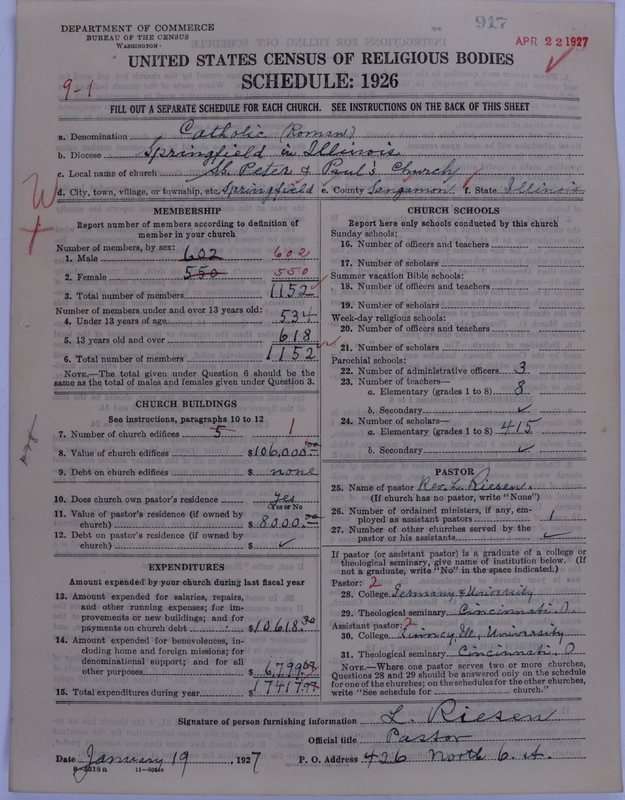 917
DEPARTMENT OF COMMERCE
BUREAU OF THE CENSUS
WASHINGTON
APR 22 1927
UNITED STATES CENSUS OF RELIGIOUS BODIES
SCHEDULE: 1926
9-1
FILL OUT A SEPARATE SCHEDULE FOR EACH CHURCH. SEE INSTRUCTIONS ON THE BACK OF THIS SHEET
a. Denomination Catholic (Roman)
b. Diocese Springfield in Illinois
c. Local name of church Ss. Peter & Paul's Church
d. City, town, village, or township, etc. Springfield e. County Sangamon f. State Illinois
MEMBERSHIP
Report number of members according to definition of
member in your church
Number of members, by sex:
1. Male 602 602
2. Female 550 550
3. Total number of members 1152
Number of members under and over 13 years old:
4. Under 13 years of age 534
5. 13 years old and over 618
6. Total number of members 1152
NOTE.—The total given under Question 6 should be
same as the total of males and females given under Question 3.
CHURCH BUILDINGS
See instructions, paragraphs 10 to 12
7. Number of church edifices 5 1
8. Value of church edifices $106,000.00
9. Debt on church edifices $ none
10. Does church own pastor's residence yes
(Yes or No)
11. Value of pastor's residence (if owned by
church) $8000.—
12. Debt on pastor's residence (if owned by
church) $ ✓
EXPENDITURES
Amount expended by your church during last fiscal year
13. Amount expended for salaries, repairs,
and other running expenses; for im-
provements or new buildings; and for
payments on church debt $10,618.30
14. Amount expended for benevolences, in-
cluding home and foreign missions; for
denominational support; and for all
other purposes $ 6799
15. Total expenditures during year $17417
CHURCH SCHOOLS
Report here only schools conducted by this church
Sunday schools:
16. Number of officers and teachers
17. Number of scholars
Summer vacation Bible schools:
18. Number of officers and teachers
19. Number of scholars
Week-day religious schools:
20. Number of officers and teachers
21. Number of scholars
Parochial schools:
22. Number of administrative officers 3
23. Number of teachers—
a. Elementary (grades 1 to 8) 8
b. Secondary ✓
24. Number of scholars—
a. Elementary (grades 1 to 8) 415
b. Secondary ✓
PASTOR
25. Name of pastor Rev. L. Riesen
(If church has no pastor, write "None")
26. Number of ordained ministers, if any, em-
ployed as assistant pastors 1
27. Number of other churches served by the
pastor or his assistants ✓
If pastor (or assistant pastor) is a graduate of a college or
theological seminary, give name of institution below. (If
not a graduate, write "No" in the space indicated.)
Pastor: 2
28. College Germany & University
29. Theological seminary Cincinnati. O.
Assistant pastor: 2
30. College Quincy Ill. University
31. Theological seminary Cincinnati. O
NOTE.—Where one pastor serves two or more churches,
Questions 28 and 29 should be answered only on the schedule
for one of the churches; on the schedules for the other churches,
write "See schedule for church."
Signature of person furnishing information L. Riesen
Official title Pastor
Date January 19, 1927 P. O. Address 426 North 6. st.
8-5518a 11-9088